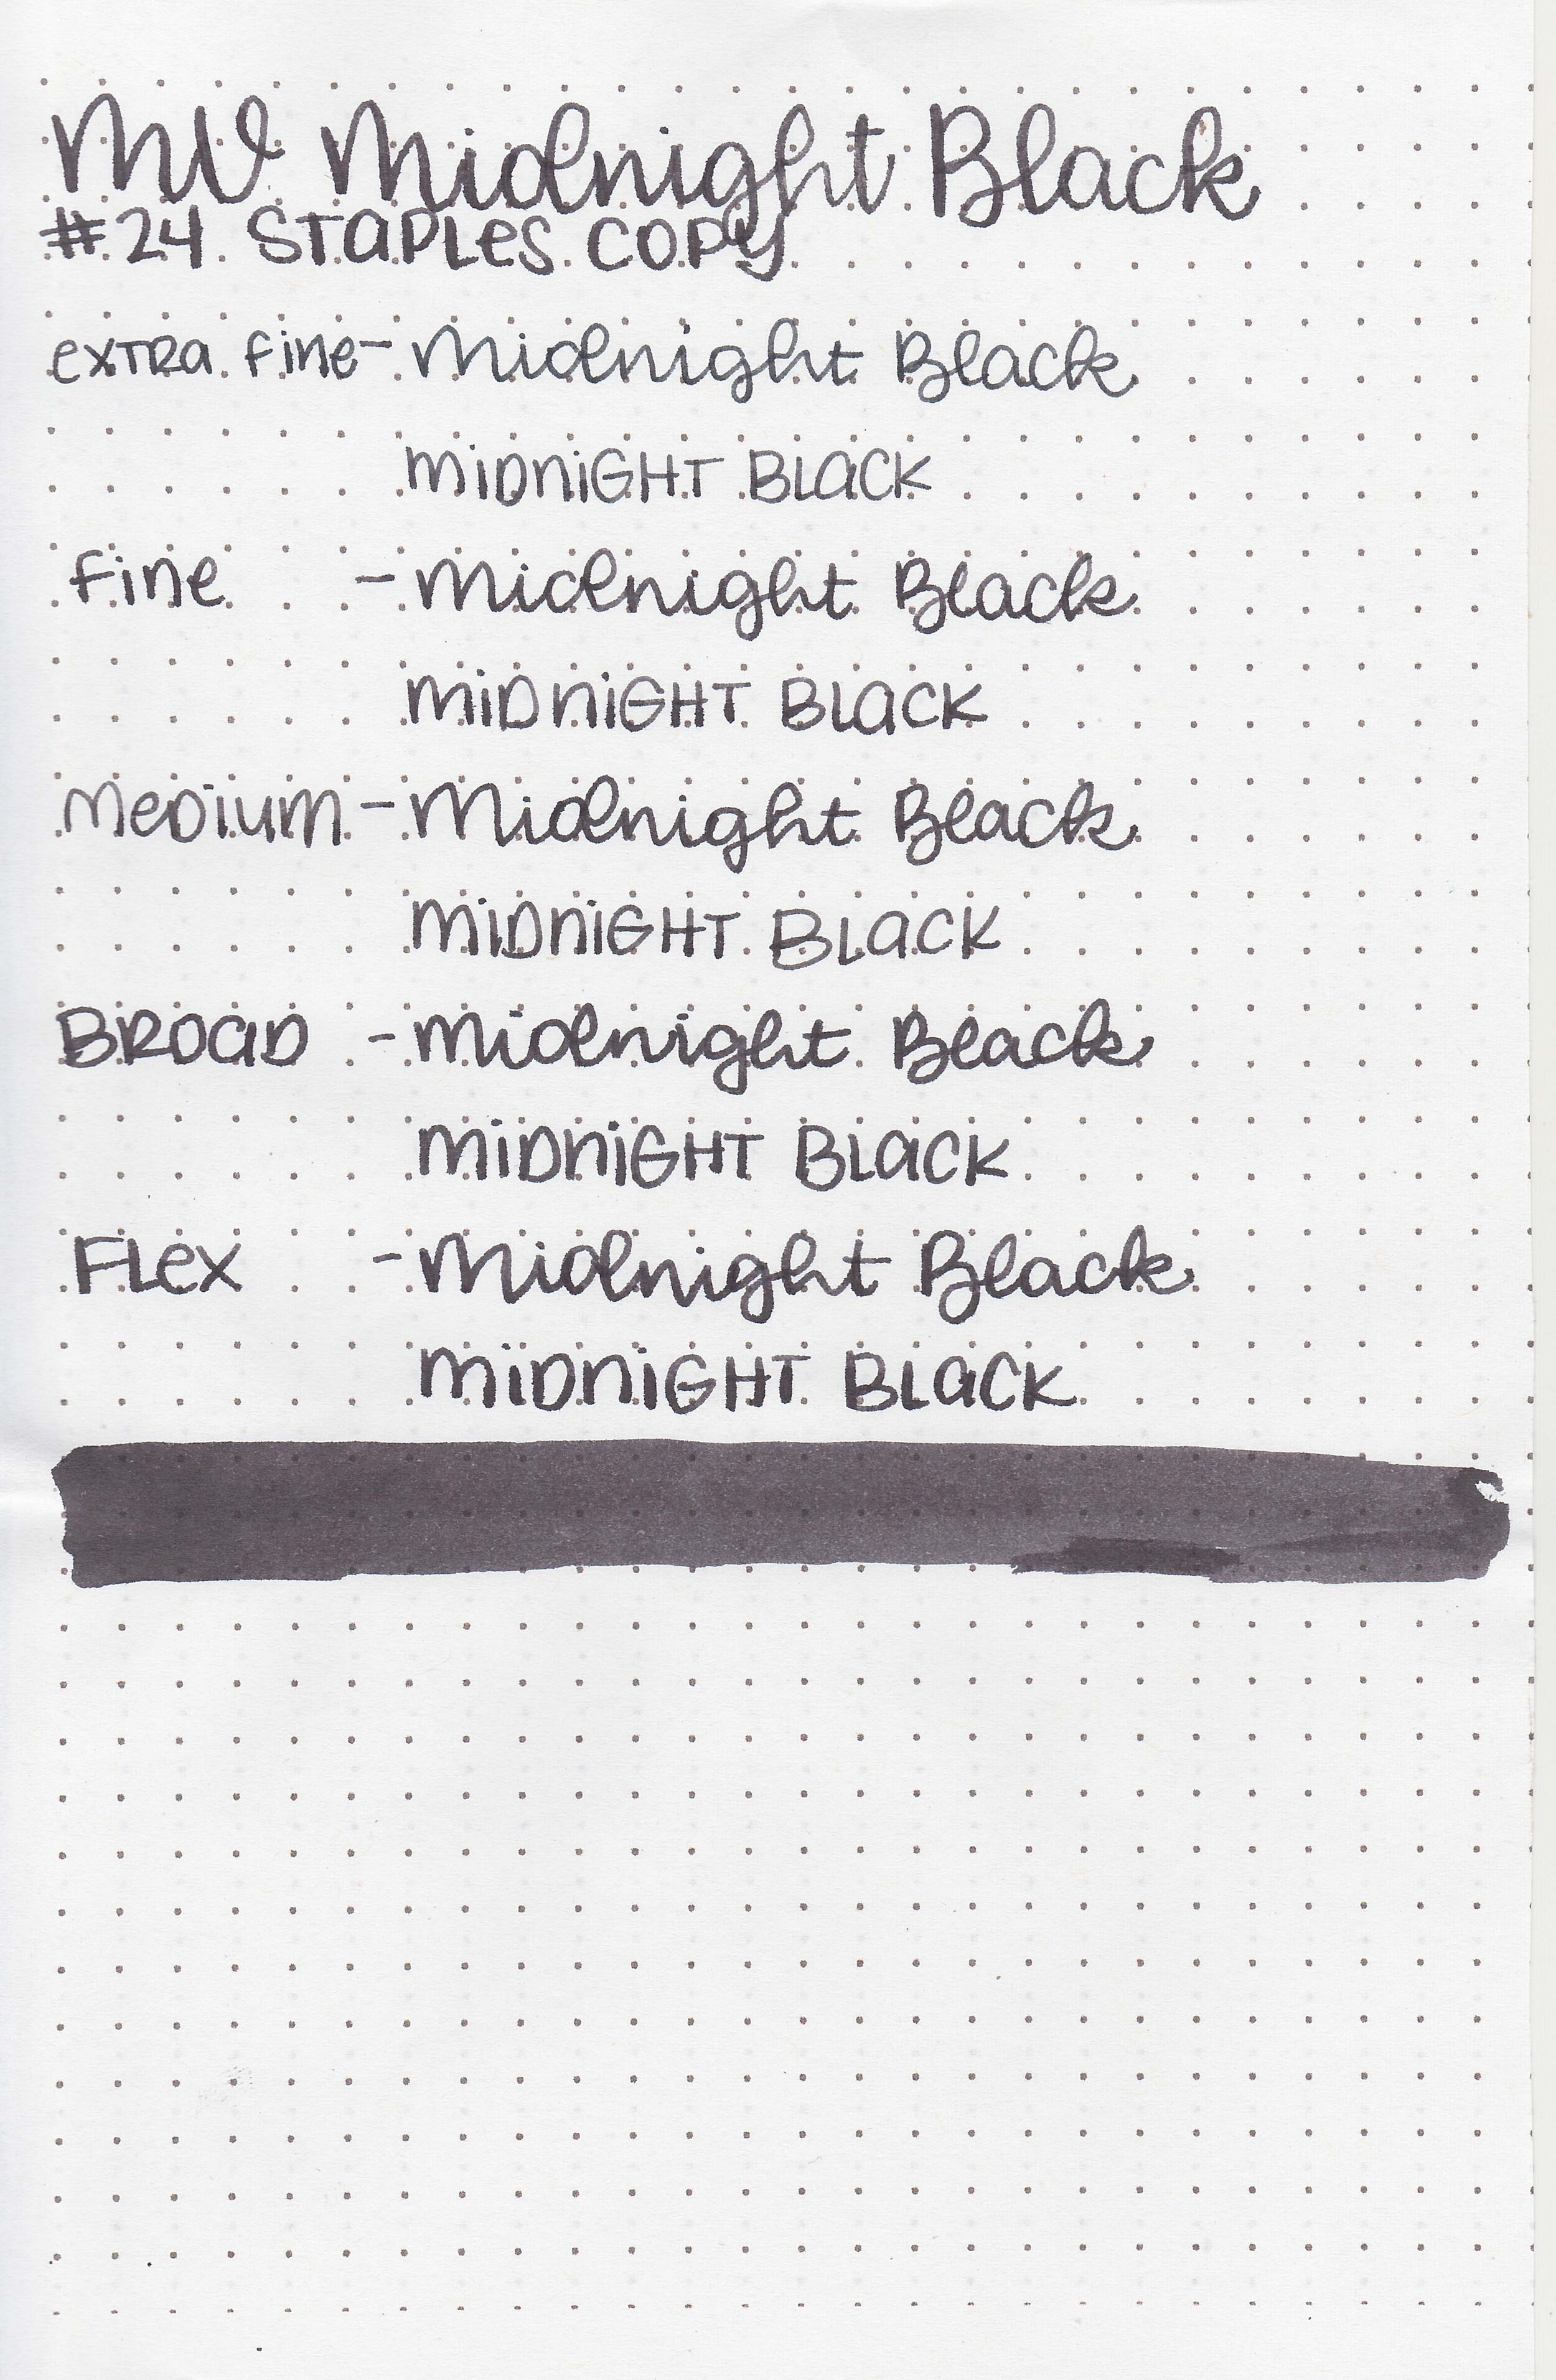 MV Midnight Black
#24 STAPLES COPY
extra fine - Midnight Black
MIDNIGHT BLACK
Fine - Midnight Black
MIDNIGHT BLACK
Medium - Midnight Black
MIDNIGHT BLACK
BROAD - Midnight Black
MIDNIGHT BLACK
FLex - Midnight Black
MIDNIGHT BLACK